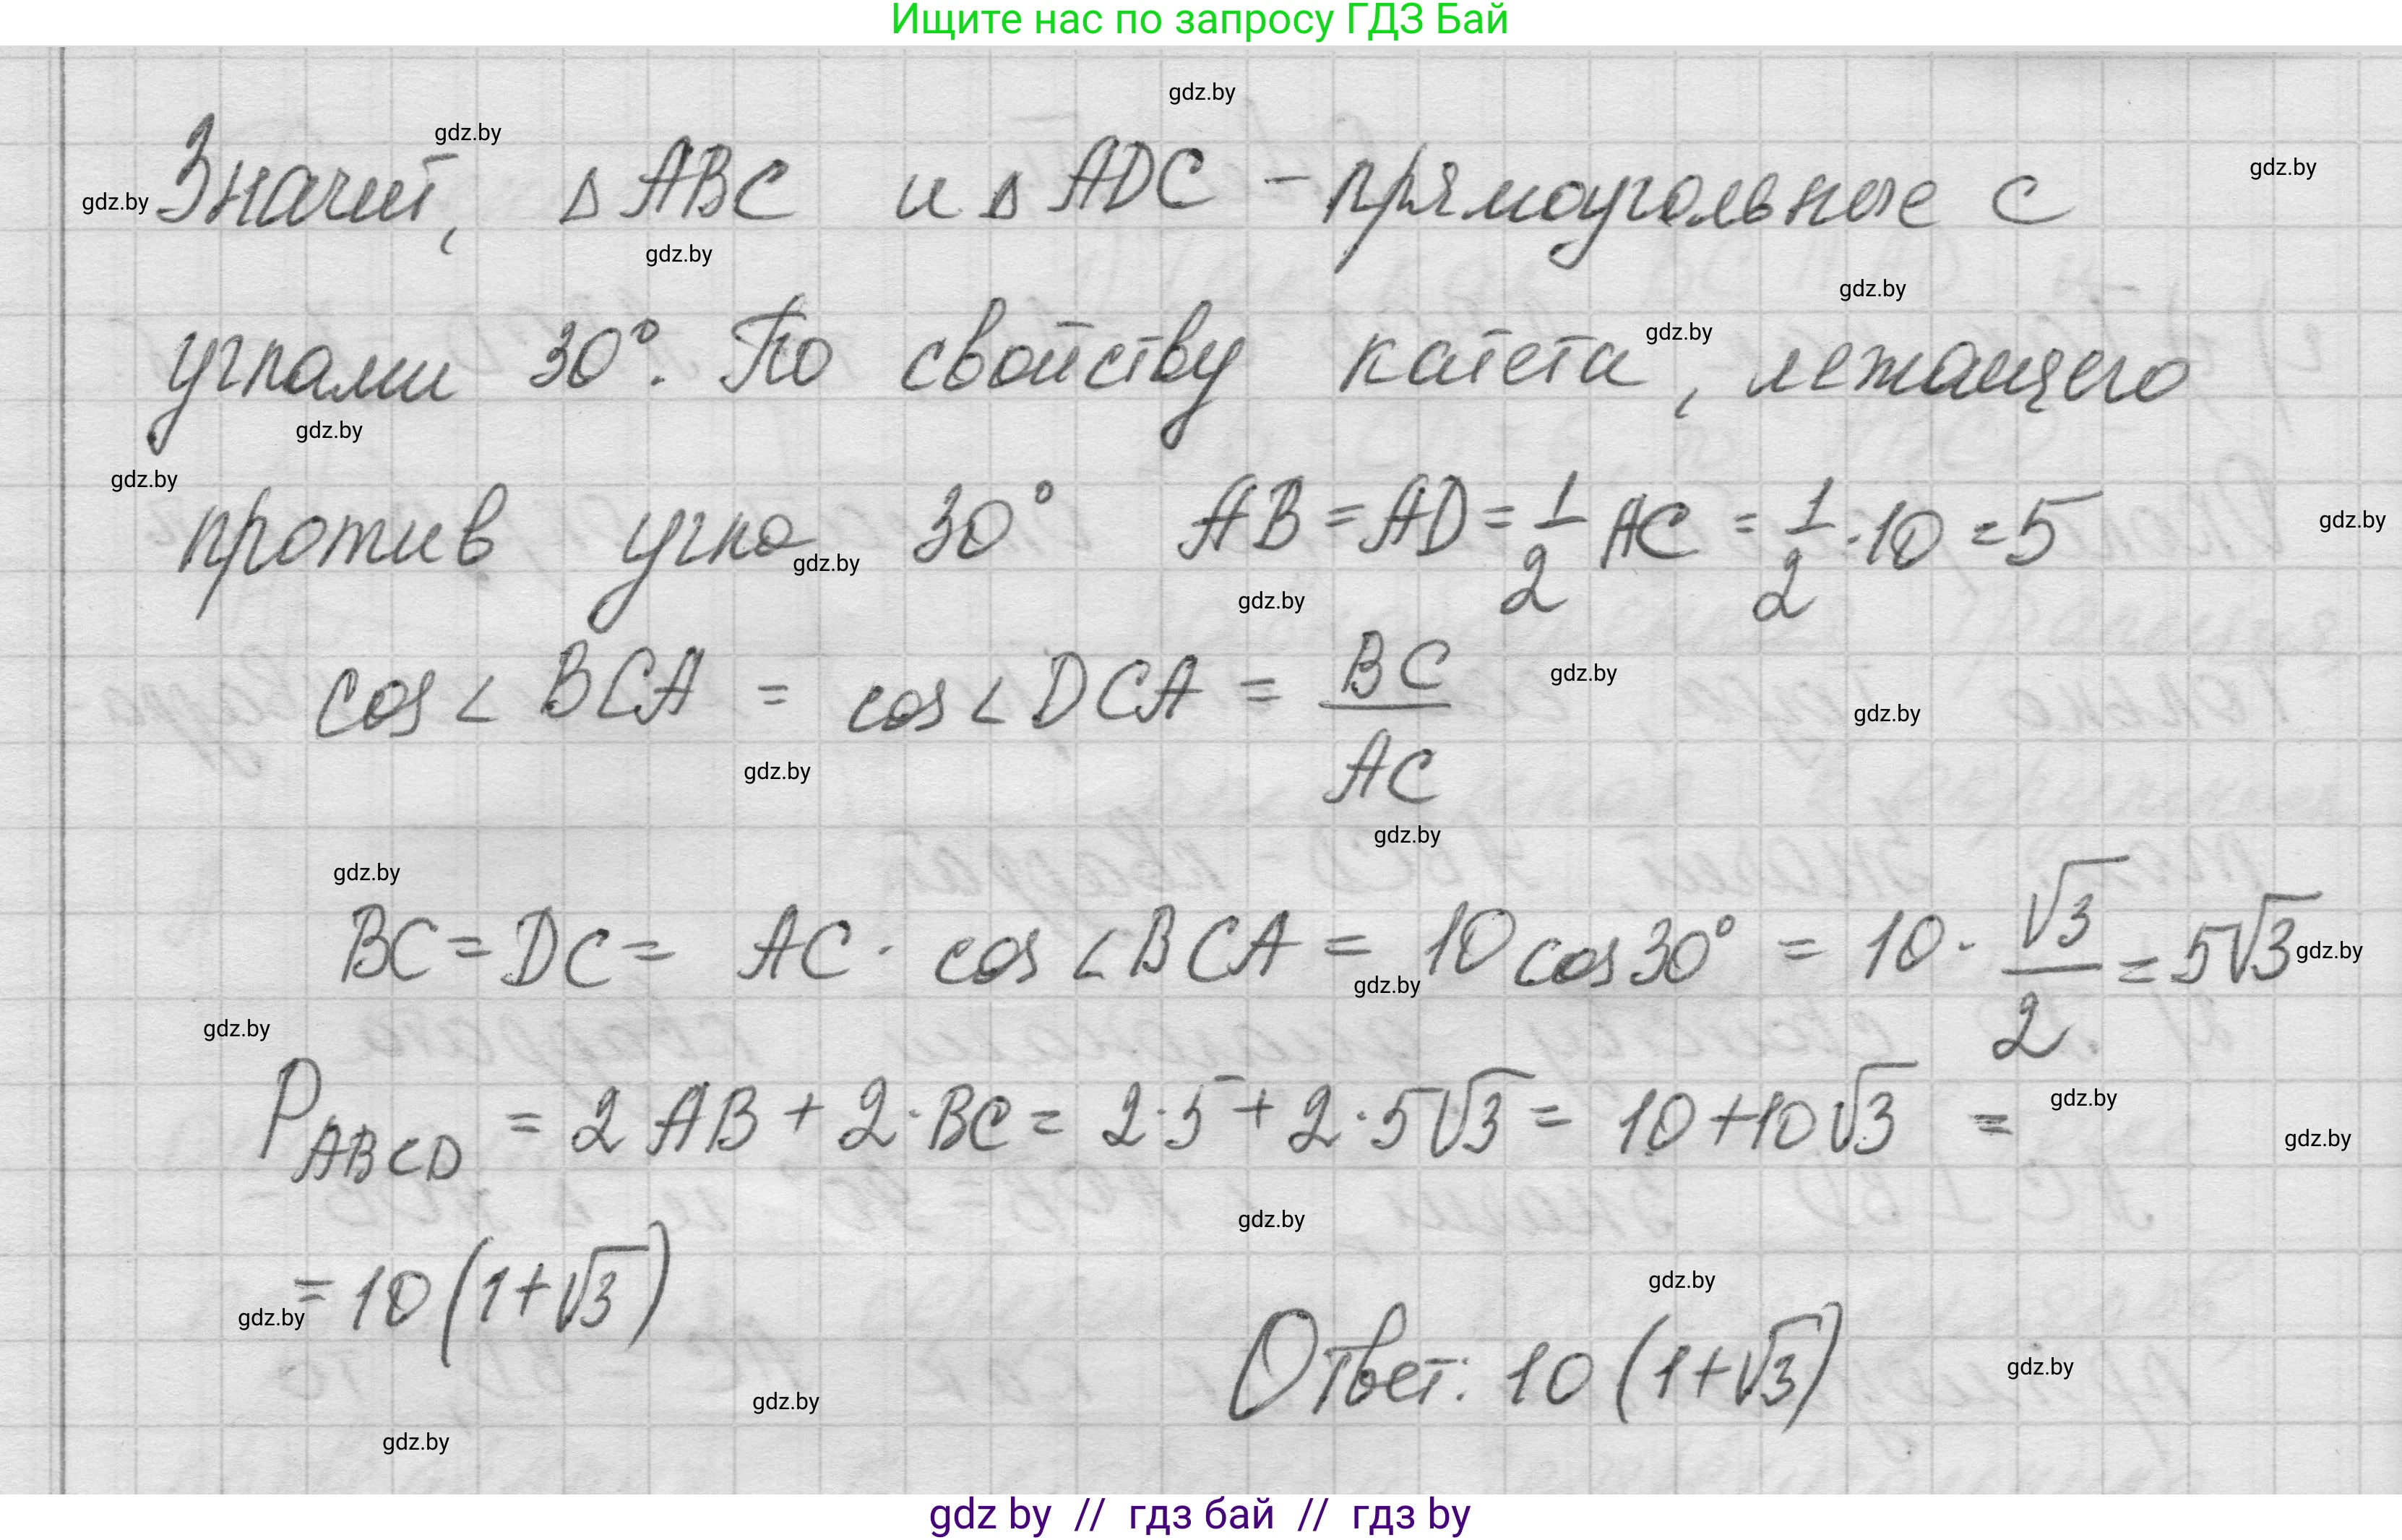 Ищите нас по запросу ГДЗ Бай
gdz.by
gdz.by
gdz.by
gdz.by
Значит, Δ ABC и Δ ADC – прямоугольные с
gdz.by
gdz.by
gdz.by
углами 30°. По свойству катета, лежащего
gdz.by
gdz.by
gdz.by
против угла 30° AB = AD = 1/2 AC = 1/2 · 10 = 5
gdz.by
gdz.by
gdz.by
cos ∠ BCA = cos ∠ DCA = BC/AC
gdz.by
gdz.by
gdz.by
gdz.by
BC = DC = AC · cos ∠ BCA = 10 cos 30° = 10 · √3/2 = 5√3
gdz.by
gdz.by
gdz.by
P ABCD = 2 AB + 2 · BC = 2 · 5 + 2 · 5√3 = 10 + 10√3 =
gdz.by
gdz.by
gdz.by
= 10 (1 + √3)
gdz.by
gdz.by
Ответ: 10 (1 + √3)
gdz.by
gdz.by
gdz.by
gdz by // гдз бай // гдз by